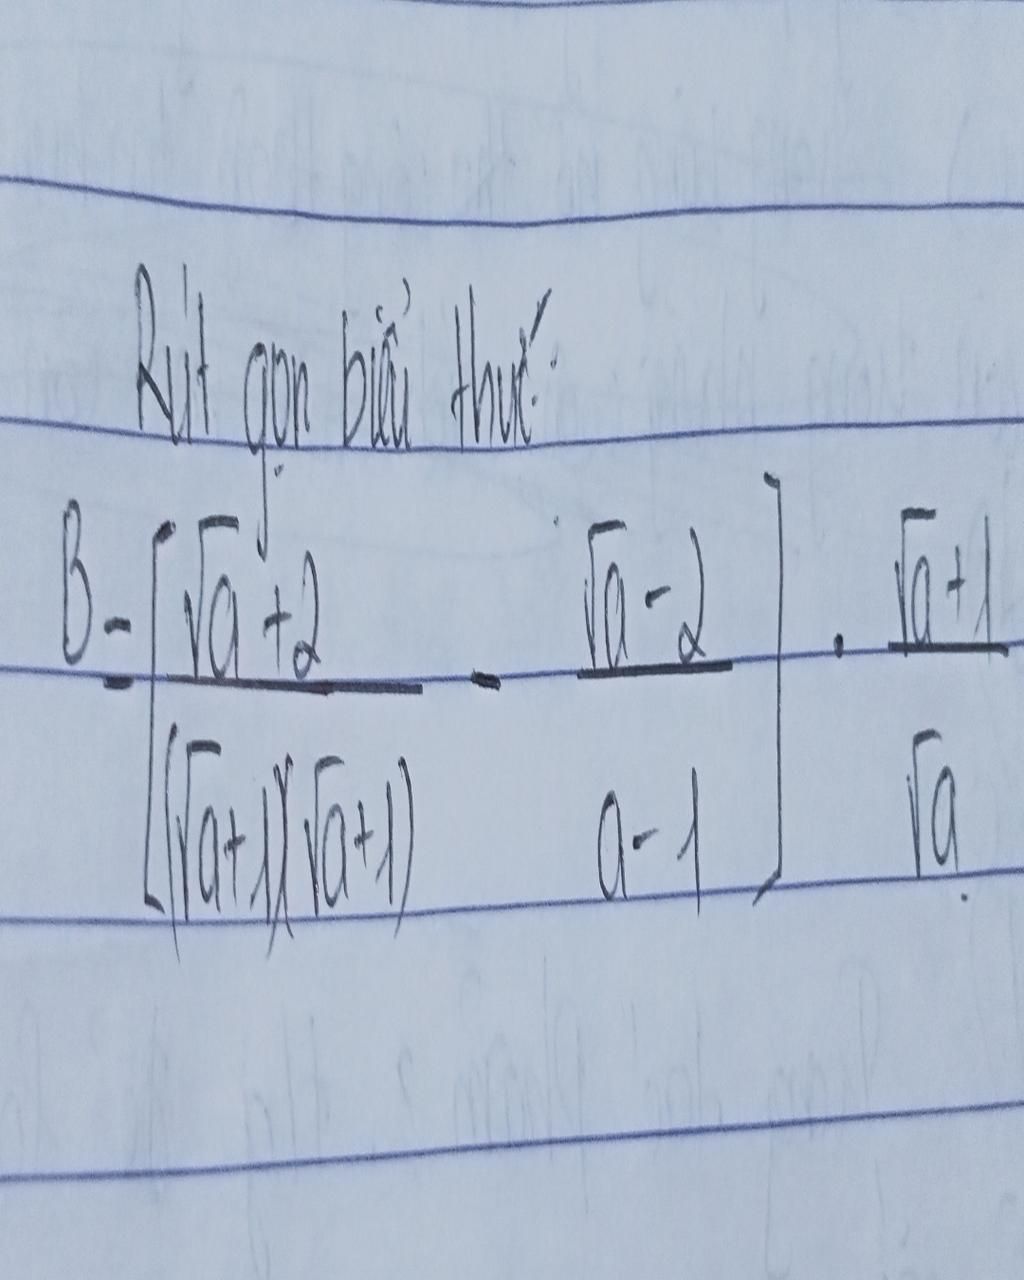 Rút gọn biểu thức:
B = [ (√a + 2) / ((√a+1)(√a+1)) - (√a - 2) / (a - 1) ] . (√a + 1) / √a